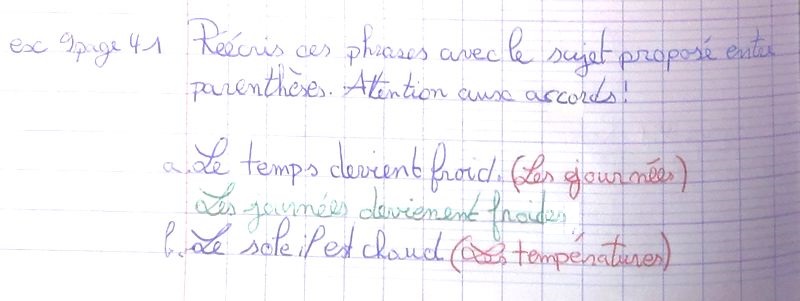 ex 9 page 41 Réécris ces phrases avec le sujet proposé entre
parenthèses. Attention aux accords!
a. Le temps devient froid. (Les journées)
Les journées devienent froides.
b. Le soleil est chaud (températures)